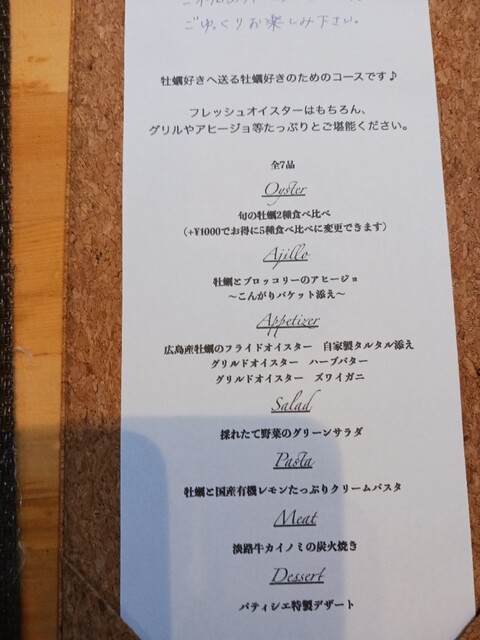 ごゆっくりお楽しみ下さい。
牡蠣好きへ送る牡蠣好きのためのコースです♪
フレッシュオイスターはもちろん、
グリルやアヒージョ等たっぷりとご堪能ください。
全7品
Oyster
旬の牡蠣2種食べ比べ
（+¥1000でお得に5種食べ比べに変更できます）
Ajillo
牡蠣とブロッコリーのアヒージョ
～こんがりバケット添え～
Appetizer
広島産牡蠣のフライドオイスター　自家製タルタル添え
グリルドオイスター　ハーブバター
グリルドオイスター　ズワイガニ
Salad
採れたて野菜のグリーンサラダ
Pasta
牡蠣と国産有機レモンたっぷりクリームパスタ
Meat
淡路牛カイノミの炭火焼き
Dessert
パティシエ特製デザート